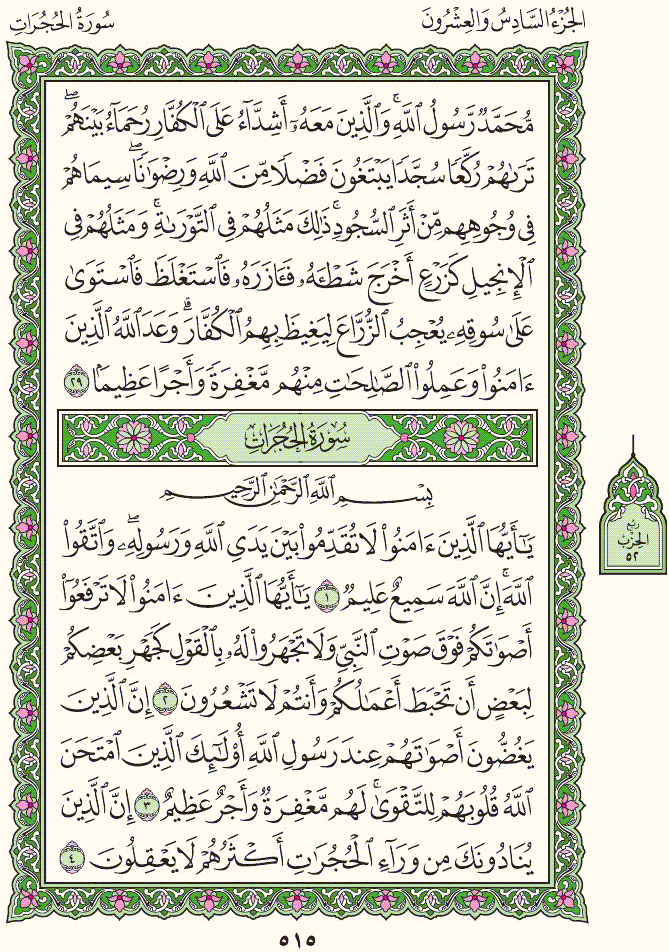 الجُزْءُ السَّادِسُ وَالعِشْرُونَ
سُورَةُ الحُجُرَاتِ
مُّحَمَّدٌ رَّسُولُ ٱللَّهِۚ وَٱلَّذِينَ مَعَهُۥٓ أَشِدَّآءُ عَلَى ٱلْكُفَّارِ رُحَمَآءُ بَيْنَهُمْۖ
تَرَىٰهُمْ رُكَّعًا سُجَّدًا يَبْتَغُونَ فَضْلًا مِّنَ ٱللَّهِ وَرِضْوَٰنًاۖ سِيمَاهُمْ
فِى وُجُوهِهِم مِّنْ أَثَرِ ٱلسُّجُودِۚ ذَٰلِكَ مَثَلُهُمْ فِى ٱلتَّوْرَىٰةِۚ وَمَثَلُهُمْ فِى
ٱلْإِنجِيلِ كَزَرْعٍ أَخْرَجَ شَطْـَٔهُۥ فَـَٔازَرَهُۥ فَٱسْتَغْلَظَ فَٱسْتَوَىٰ
عَلَىٰ سُوقِهِۦ يُعْجِبُ ٱلزُّرَّاعَ لِيَغِيظَ بِهِمُ ٱلْكُفَّارَۗ وَعَدَ ٱللَّهُ ٱلَّذِينَ
ءَامَنُوا۟ وَعَمِلُوا۟ ٱلصَّـٰلِحَـٰتِ مِنْهُم مَّغْفِرَةً وَأَجْرًا عَظِيمًۢا ٢٩
سُورَةُ الحُجُرَاتِ
بِسْمِ ٱللَّهِ ٱلرَّحْمَـٰنِ ٱلرَّحِيمِ
يَـٰٓأَيُّهَا ٱلَّذِينَ ءَامَنُوا۟ لَا تُقَدِّمُوا۟ بَيْنَ يَدَىِ ٱللَّهِ وَرَسُولِهِۦۖ وَٱتَّقُوا۟
ٱللَّهَۚ إِنَّ ٱللَّهَ سَمِيعٌ عَلِيمٌ ١ يَـٰٓأَيُّهَا ٱلَّذِينَ ءَامَنُوا۟ لَا تَرْفَعُوٓا۟
أَصْوَٰتَكُمْ فَوْقَ صَوْتِ ٱلنَّبِىِّ وَلَا تَجْهَرُوا۟ لَهُۥ بِٱلْقَوْلِ كَجَهْرِ بَعْضِكُمْ
لِبَعْضٍ أَن تَحْبَطَ أَعْمَـٰلُكُمْ وَأَنتُمْ لَا تَشْعُرُونَ ٢ إِنَّ ٱلَّذِينَ
يَغُضُّونَ أَصْوَٰتَهُمْ عِندَ رَسُولِ ٱللَّهِ أُو۟لَـٰٓئِكَ ٱلَّذِينَ ٱمْتَحَنَ
ٱللَّهُ قُلُوبَهُمْ لِلتَّقْوَىٰۚ لَهُم مَّغْفِرَةٌ وَأَجْرٌ عَظِيمٌ ٣ إِنَّ ٱلَّذِينَ
يُنَادُونَكَ مِن وَرَآءِ ٱلْحُجُرَٰتِ أَكْثَرُهُمْ لَا يَعْقِلُونَ ٤
ربع
الحزب
٥٢
٥١٥